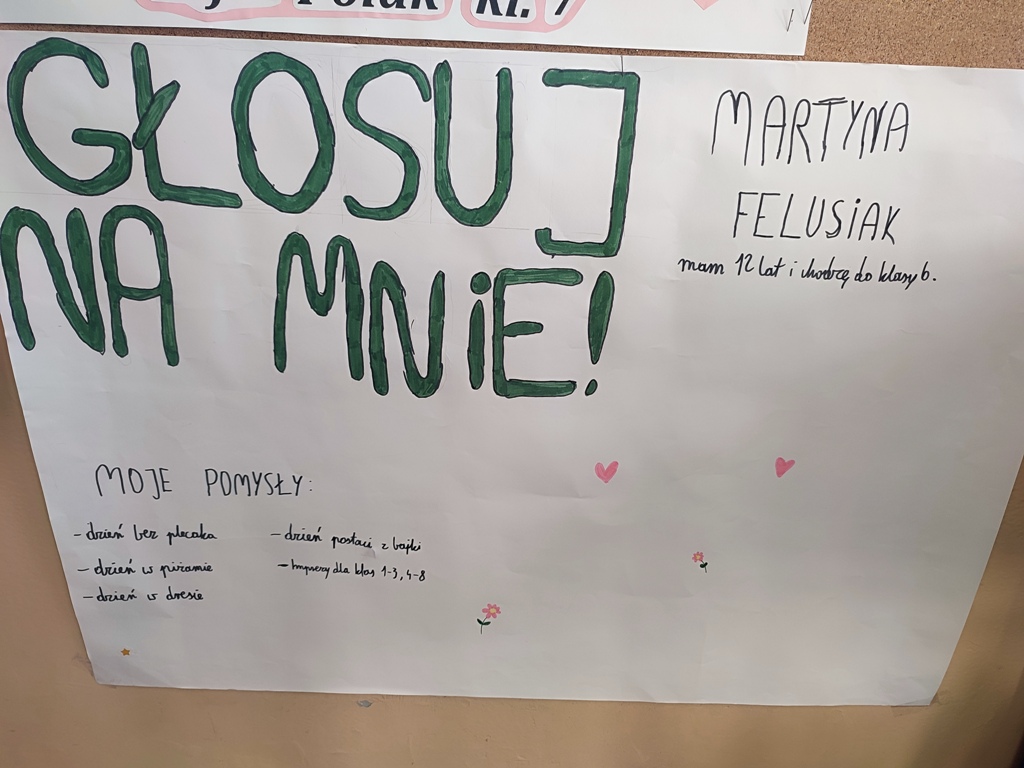 Polak kl. 7
GŁOSUJ
NA MNiE!
MARTYNA
FELUSiAK
mam 12 lat i chodzę do klasy 6.
MOJE POMYSŁY:
- dzień bez plecaka
- dzień w piżamie
- dzień w dresie
- dzień postaci z bajki
- Imprezy dla klas 1-3, 4-8